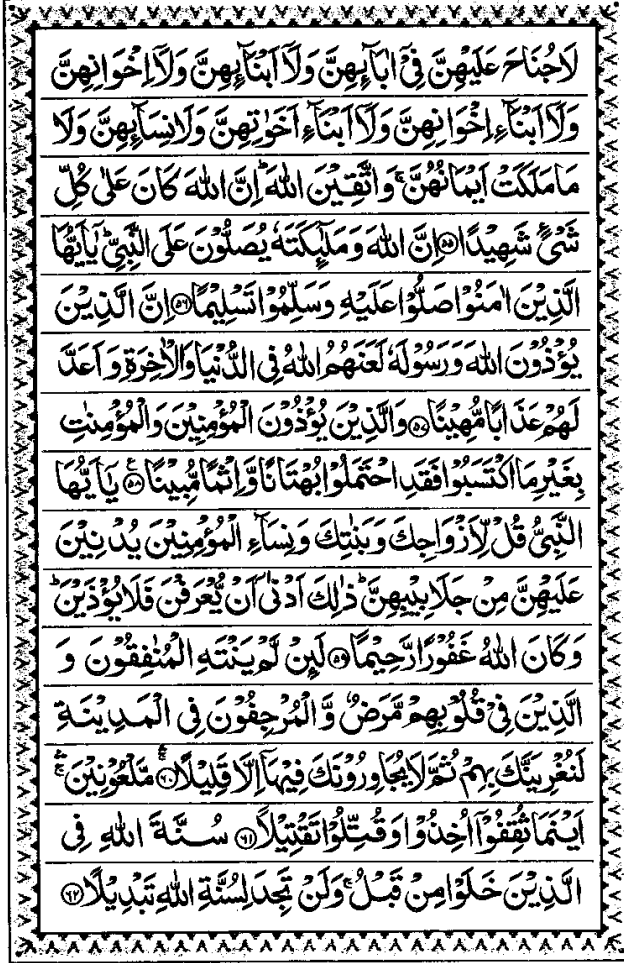 لَاجُنَاحَ عَلَيْهِنَّ فِيْٓ اٰبَآئِهِنَّ وَلَآ اَبْنَآئِهِنَّ وَلَآ اِخْوَانِهِنَّ
وَلَآ اَبْنَآءِ اِخْوَانِهِنَّ وَلَآ اَبْنَآءِ اَخَوٰتِهِنَّ وَلَا نِسَآئِهِنَّ وَلَا
مَا مَلَكَتْ اَيْمَانُهُنَّ ۚ وَاتَّقِيْنَ اللّٰهَ ؕ اِنَّ اللّٰهَ كَانَ عَلٰى كُلِّ
شَيْءٍ شَهِيْدًا ۝۵۵ اِنَّ اللّٰهَ وَمَلٰٓئِكَتَهٗ يُصَلُّوْنَ عَلَى النَّبِيِّ ؕ يٰٓاَيُّهَا
الَّذِيْنَ اٰمَنُوْا صَلُّوْا عَلَيْهِ وَسَلِّمُوْا تَسْلِيْمًا ۝۵۶ اِنَّ الَّذِيْنَ
يُؤْذُوْنَ اللّٰهَ وَرَسُوْلَهٗ لَعَنَهُمُ اللّٰهُ فِي الدُّنْيَا وَالْاٰخِرَةِ وَاَعَدَّ
لَهُمْ عَذَابًا مُّهِيْنًا ۝۵۷ وَالَّذِيْنَ يُؤْذُوْنَ الْمُؤْمِنِيْنَ وَالْمُؤْمِنٰتِ
بِغَيْرِ مَا اكْتَسَبُوْا فَقَدِ احْتَمَلُوْا بُهْتَانًا وَّاِثْمًا مُّبِيْنًا ۝۵۸ ع يٰٓاَيُّهَا
النَّبِيُّ قُلْ لِّاَزْوَاجِكَ وَبَنٰتِكَ وَنِسَآءِ الْمُؤْمِنِيْنَ يُدْنِيْنَ
عَلَيْهِنَّ مِنْ جَلَابِيْبِهِنَّ ؕ ذٰلِكَ اَدْنٰٓى اَنْ يُّعْرَفْنَ فَلَا يُؤْذَيْنَ ؕ
وَكَانَ اللّٰهُ غَفُوْرًا رَّحِيْمًا ۝۵۹ لَئِنْ لَّمْ يَنْتَهِ الْمُنٰفِقُوْنَ وَ
الَّذِيْنَ فِيْ قُلُوْبِهِمْ مَّرَضٌ وَّالْمُرْجِفُوْنَ فِي الْمَدِيْنَةِ
لَنُغْرِيَنَّكَ بِهِمْ ثُمَّ لَا يُجَاوِرُوْنَكَ فِيْهَآ اِلَّا قَلِيْلًا ۝۶۰ مَّلْعُوْنِيْنَ
اَيْنَمَا ثُقِفُوْٓا اُخِذُوْا وَقُتِّلُوْا تَقْتِيْلًا ۝۶۱ سُنَّةَ اللّٰهِ فِي
الَّذِيْنَ خَلَوْا مِنْ قَبْلُ ۚ وَلَنْ تَجِدَ لِسُنَّةِ اللّٰهِ تَبْدِيْلًا ۝۶۲